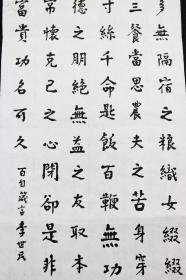 多無隔宿之粮織女綴綴
三餐當思農夫之苦身穿
寸絲千命匙飯百鞭無功
德之朋絕無益之友取本
常懷克己之心閉卻是非
富貴功名可久 百自箴言 李世民